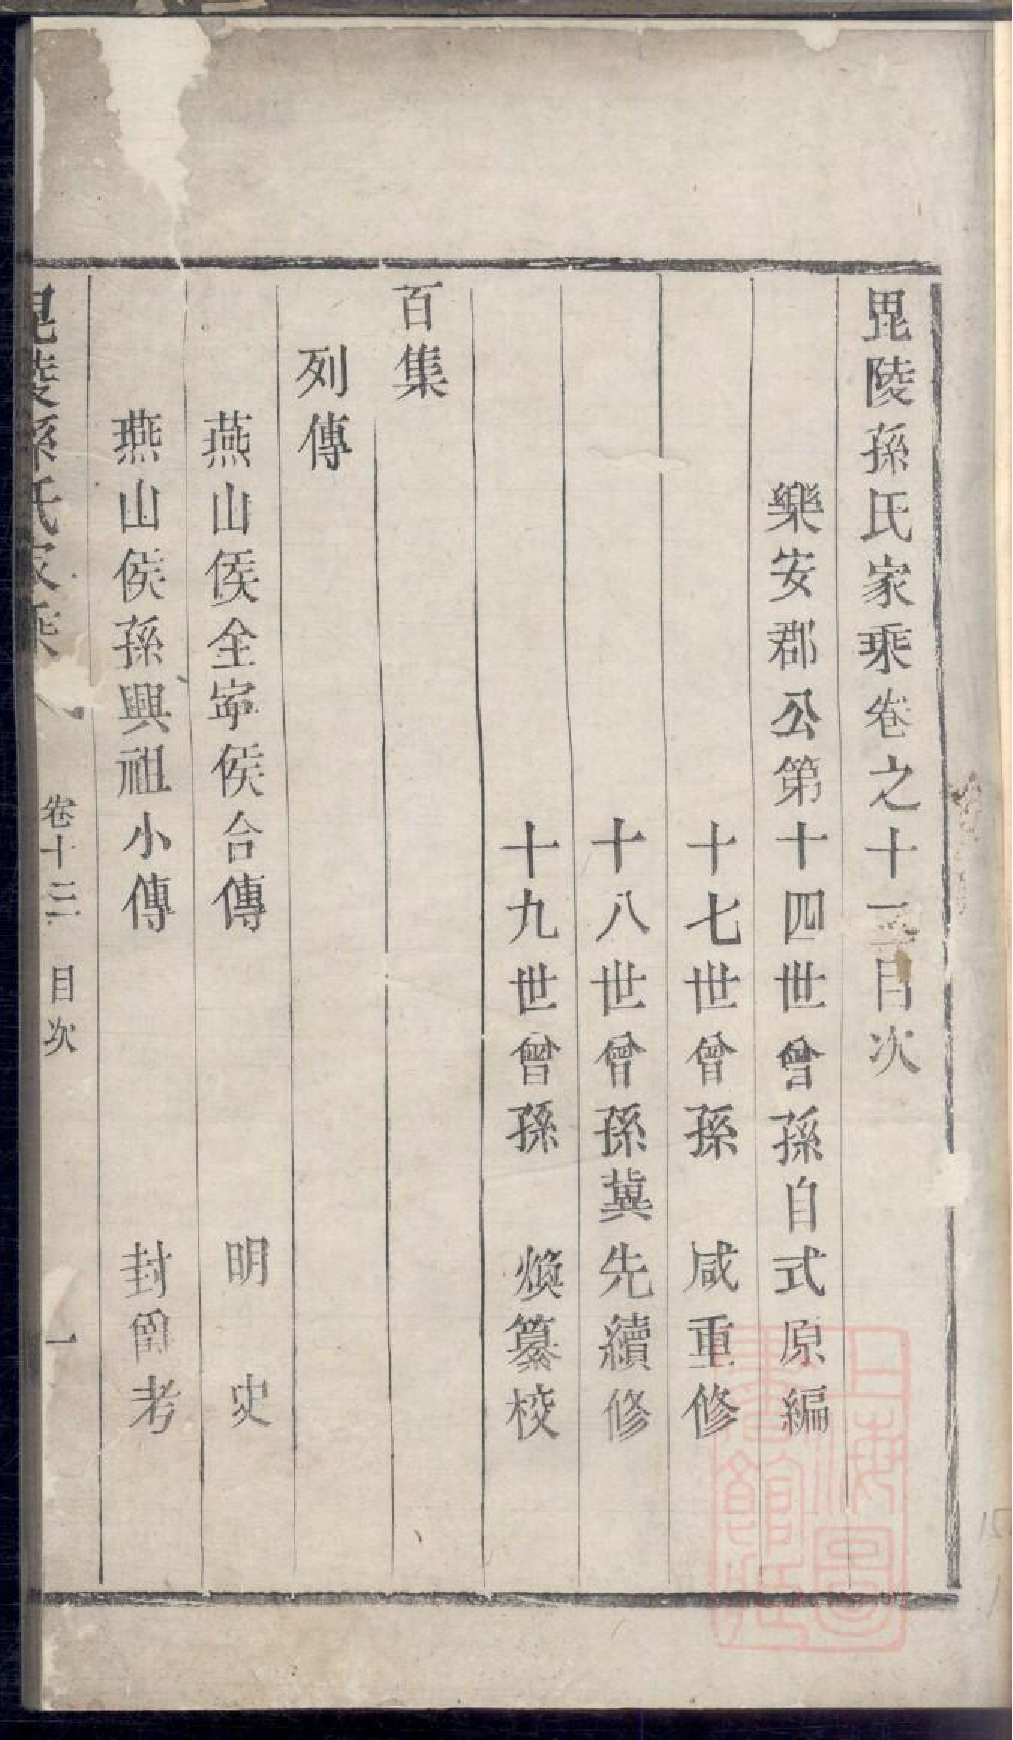 毘陵孫氏家乘卷之十三目次
樂安郡公第十四世曾孫自式原編
十七世曾孫 咸重修
十八世曾孫冀先續修
十九世曾孫 煥纂校
百集
列傳
燕山侯全寧侯合傳 明史
燕山侯孫興祖小傳 封爵考
毘陵孫氏家乘 卷十三 目次 一
上海圖書館藏